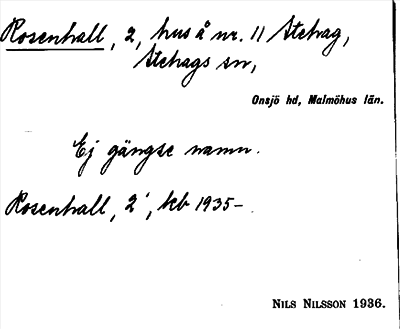 Rosenhall, 2, hus å nr. 11 Stehag,
Stehags sn,
Onsjö hd, Malmöhus län.
Ej gängse namn.
Rosenhall, 2', kb 1935-.
NILS NILSSON 1936.